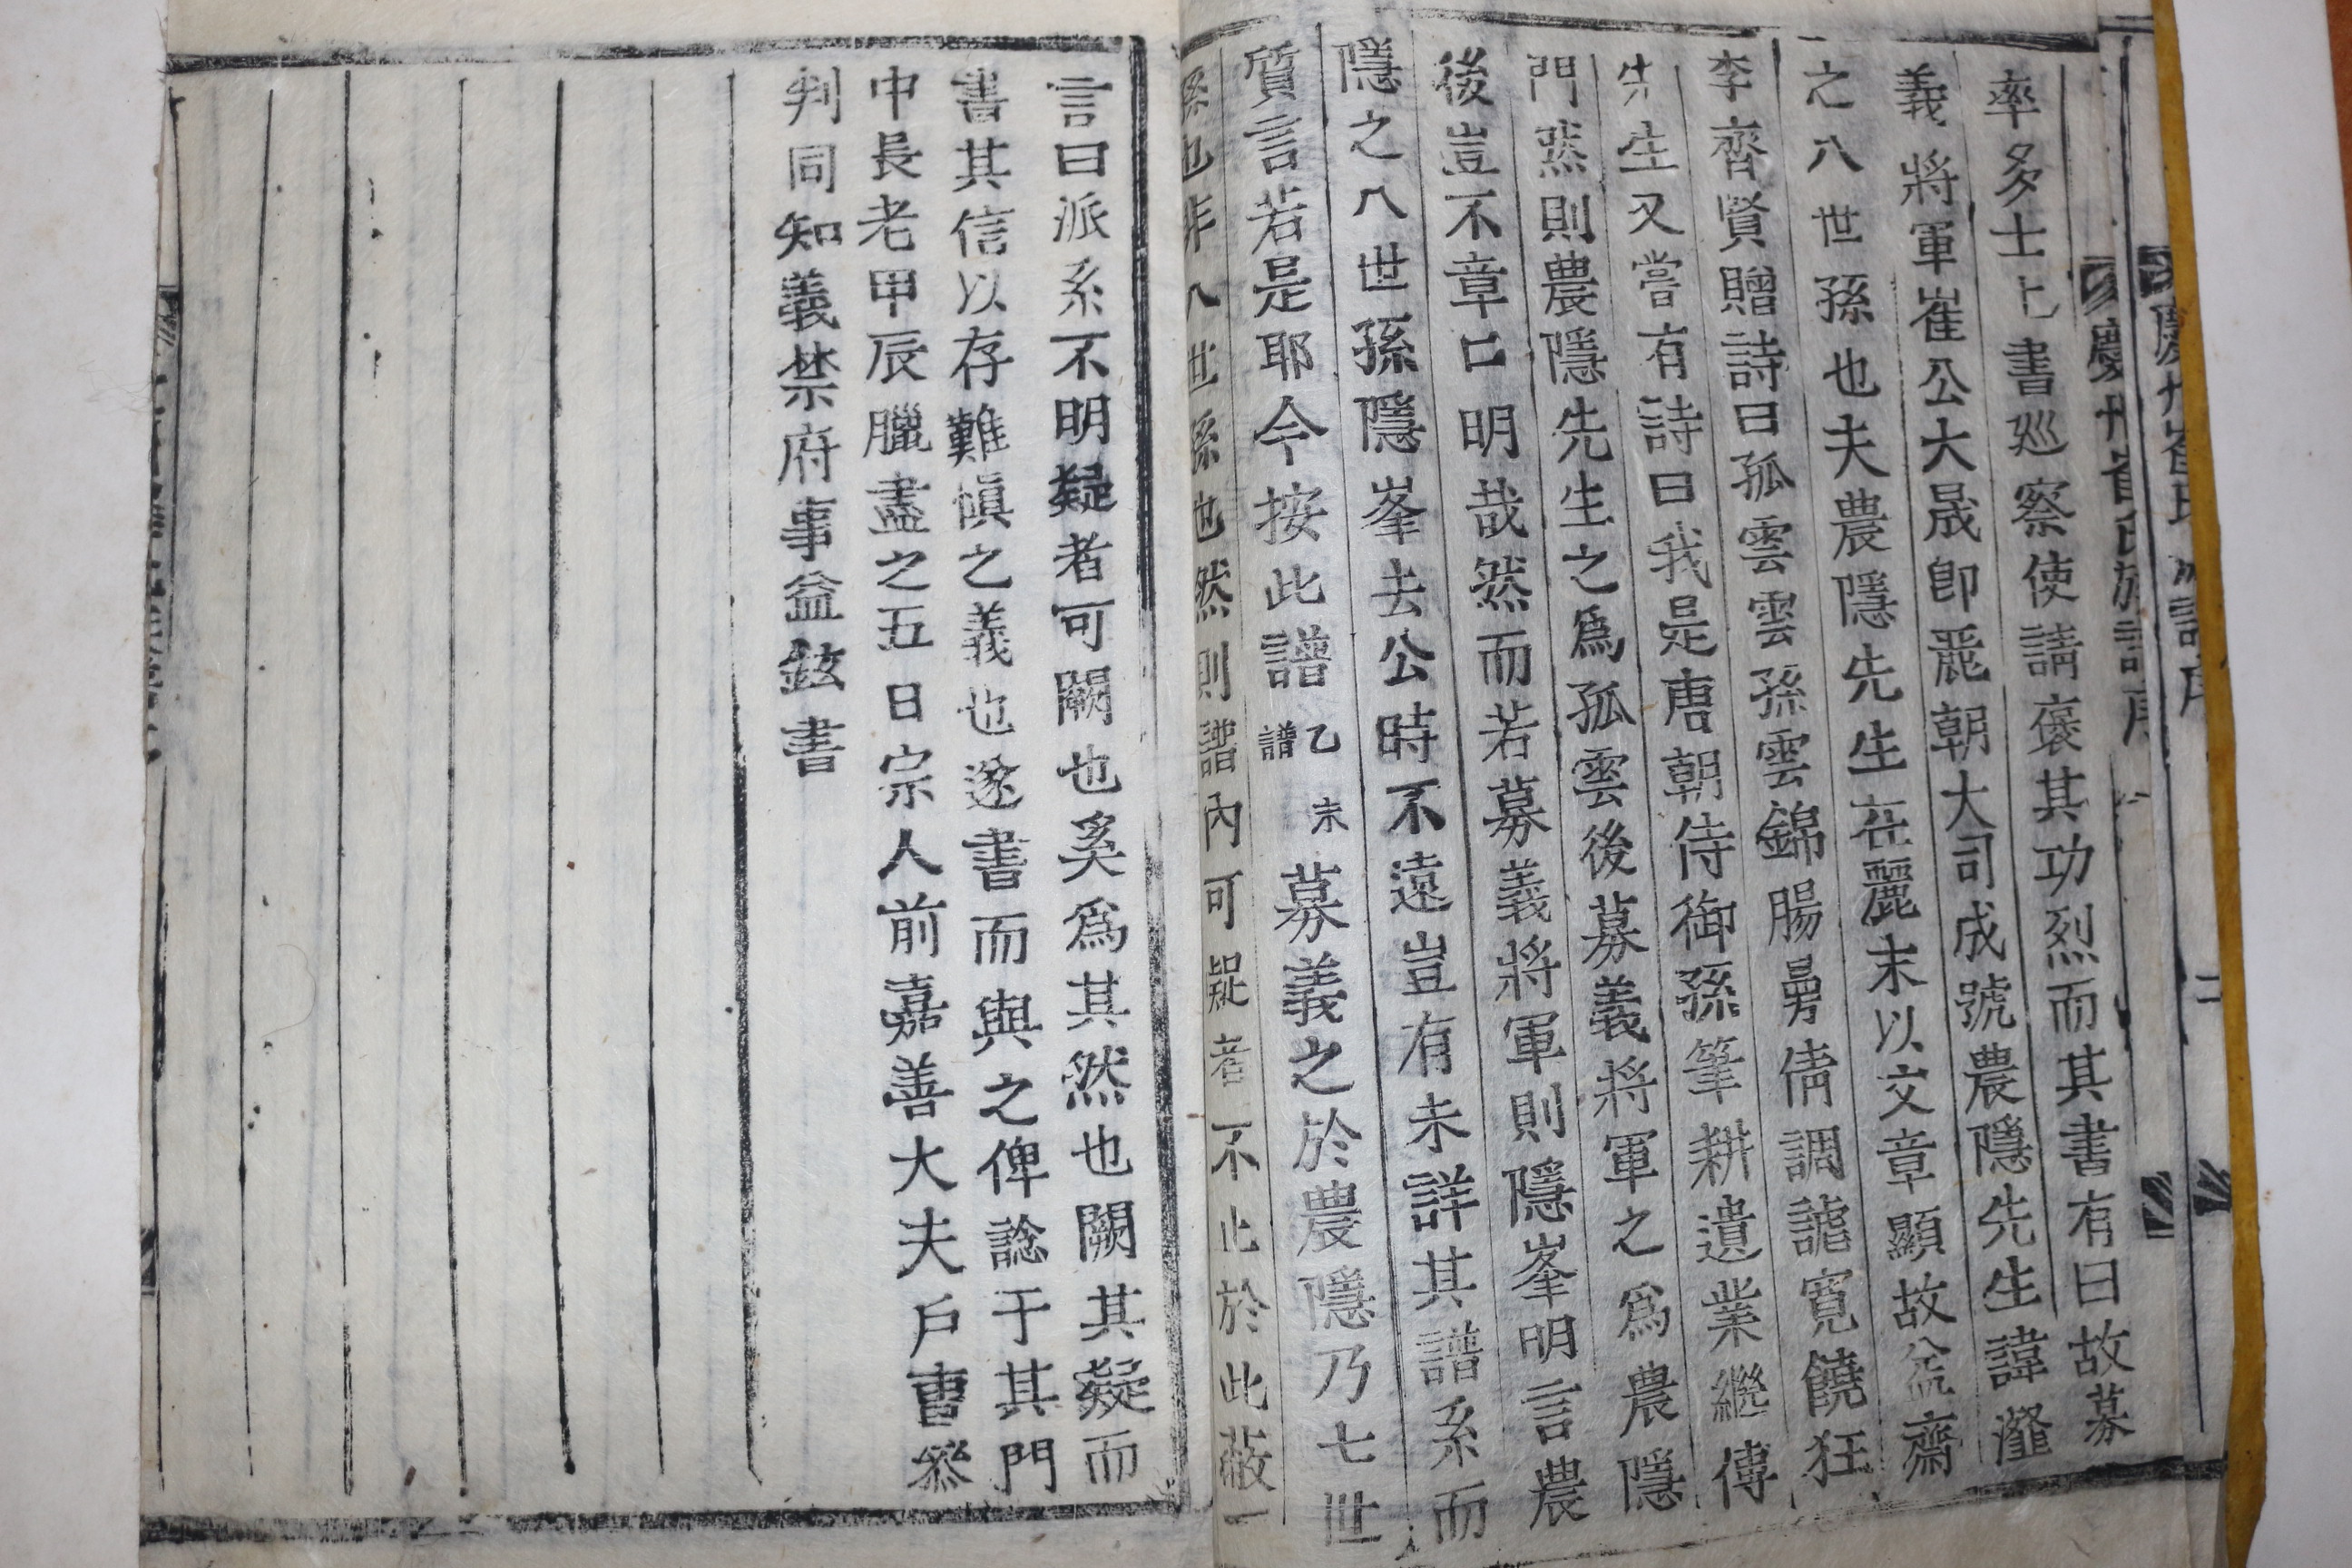 慶州崔氏族譜序
二
率多士上書巡察使請褒其功烈而其書有曰故募
義將軍崔公大晟卽麗朝大司成號農隱先生諱瀣
之八世孫也夫農隱先生在麗末以文章顯故益齋
李齊賢贈詩曰孤雲雲孫雲錦腸曼倩調謔寬饒狂
先生又嘗有詩曰我是唐朝侍御孫筆耕遺業繼傳
門然則農隱先生之爲孤雲後募義將軍之爲農隱
後豈不章口明哉然而若募義將軍則隱峯明言農
隱之八世孫隱峯去公時不遠豈有未詳其譜系而
質言若是耶今按此譜乙未譜募義之於農隱乃七世
孫也非八世孫也然則譜內可疑者不止於此蔽一
言曰派系不明疑者可闕也奚爲其然也闕其疑而
書其信以存難愼之義也遂書而與之俾諗于其門
中長老甲辰臘盡之五日宗人前嘉善大夫戶曹參
判同知義禁府事益鉉書